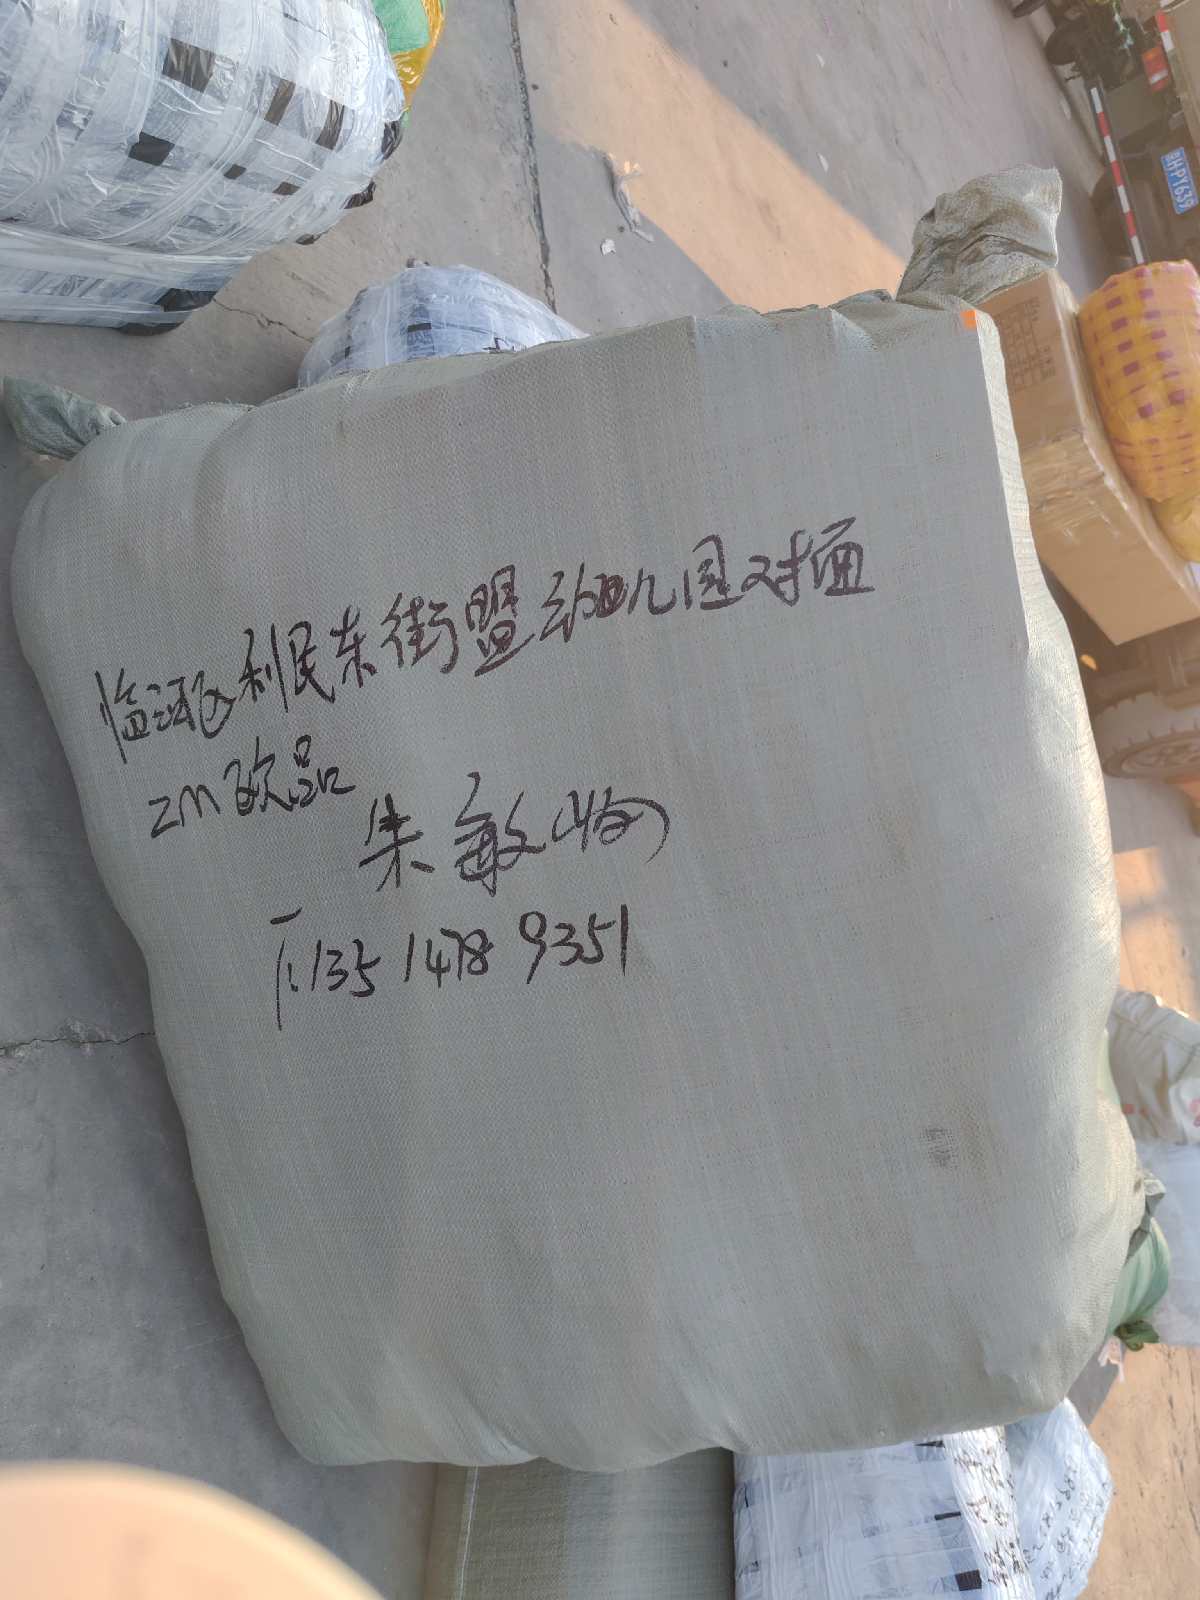 临河区利民东街盟幼幼儿园对面
ZM欧品
朱敏(临)
135 1478 9351
HPY639